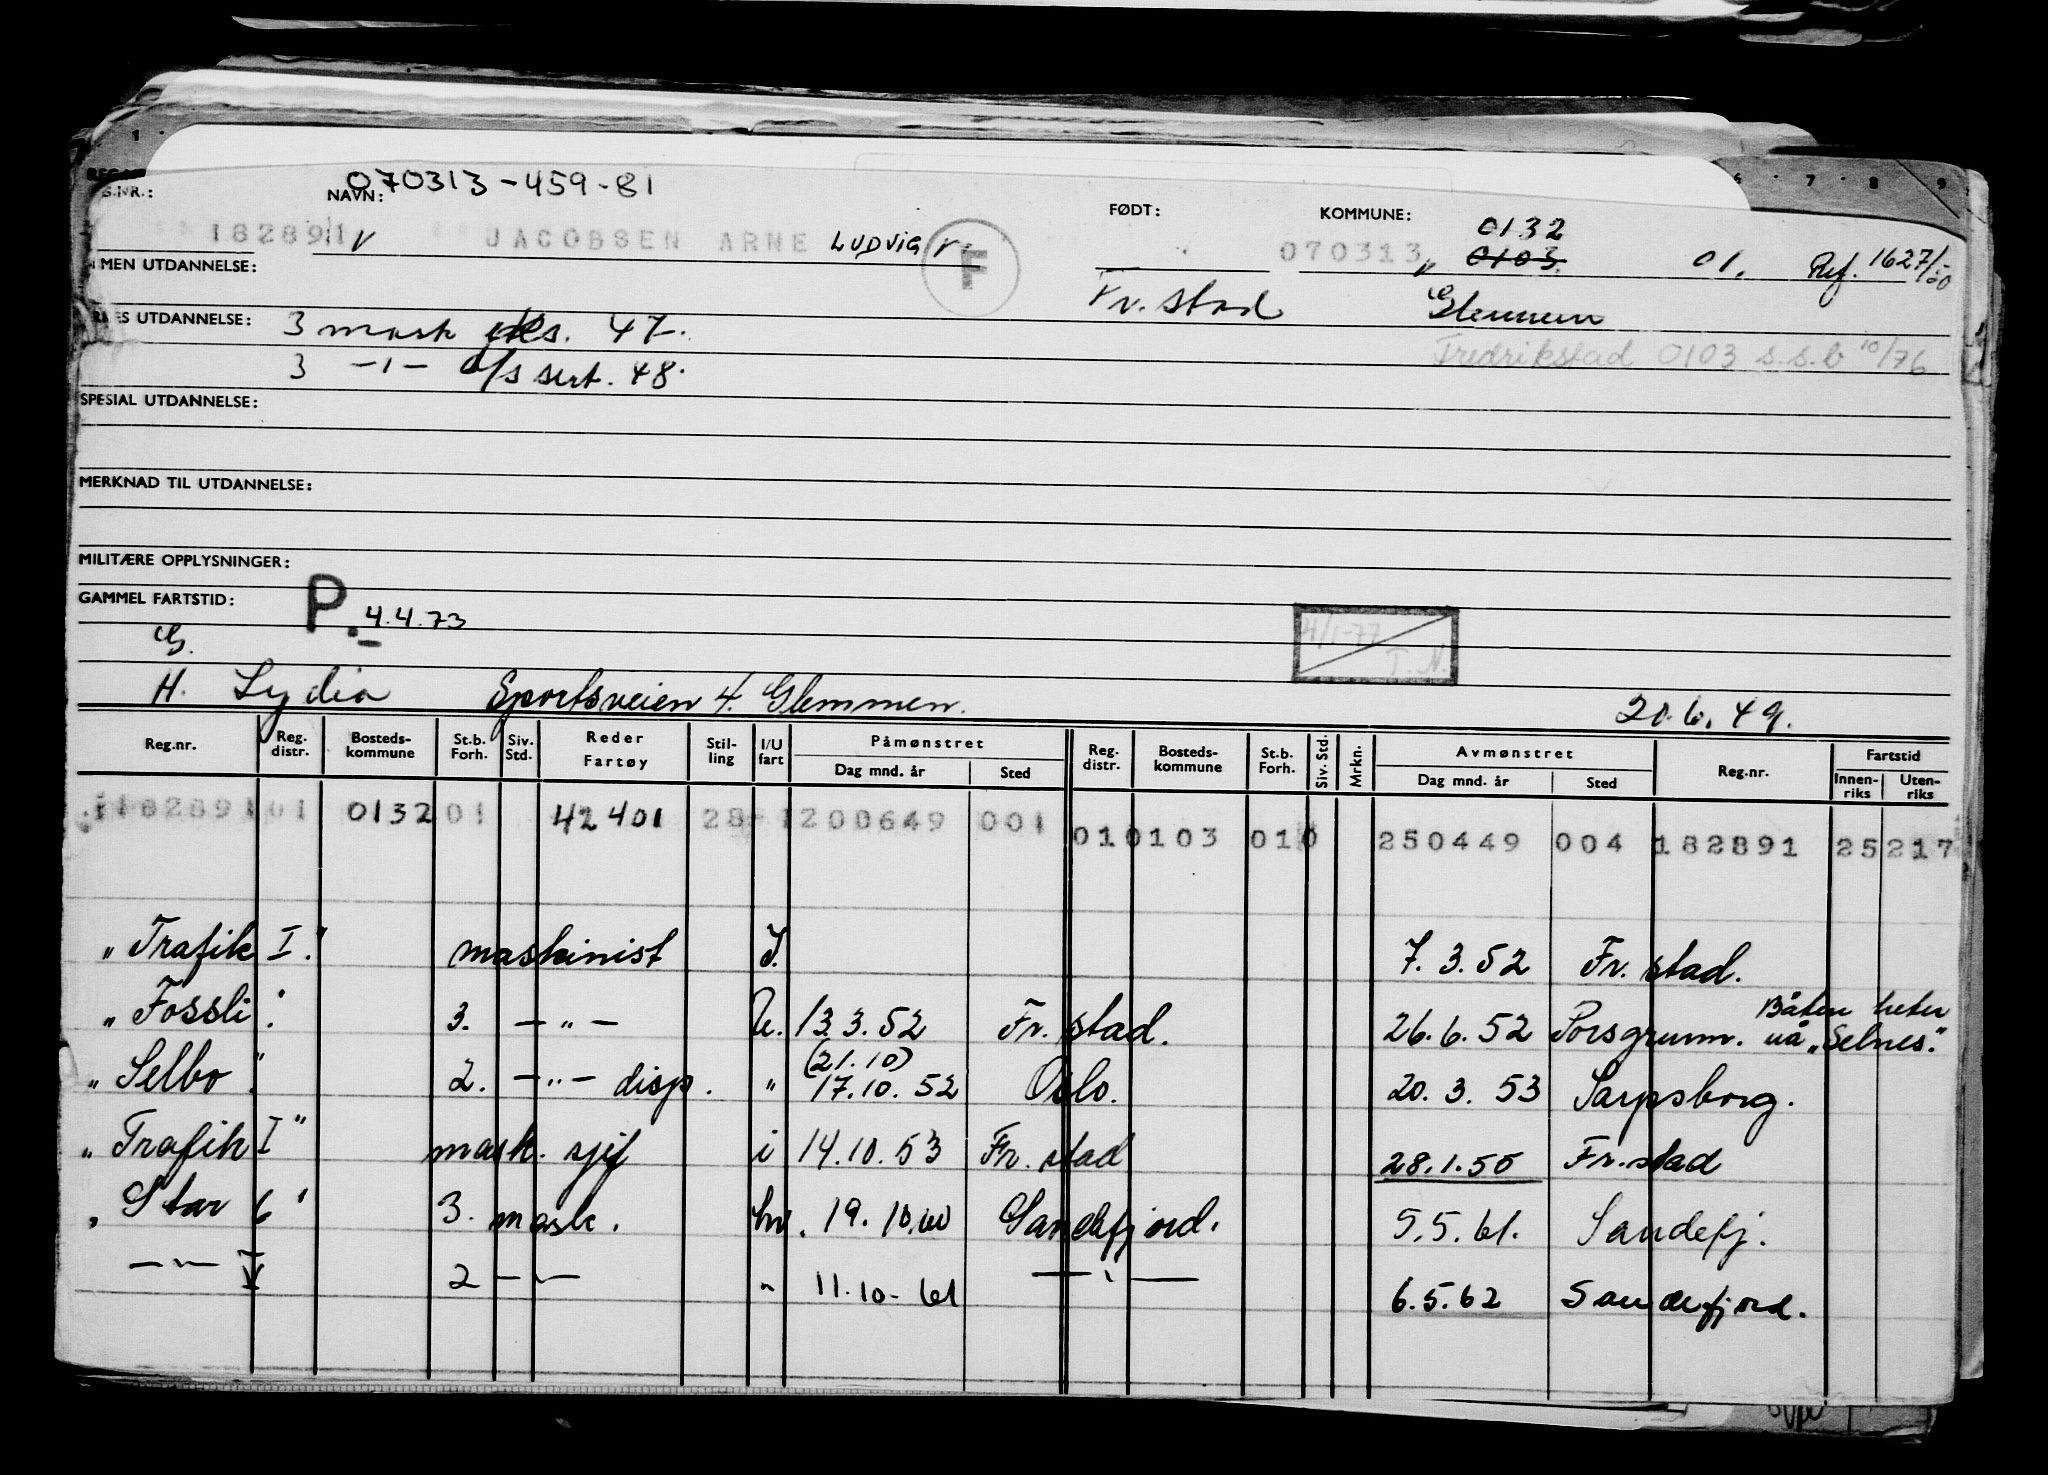 070313-459-81
S.NR.: NAVN: FØDT: KOMMUNE: 0132
182891 JACOBSEN ARNE LUDVIG F 070313 0103 01. Ref. 1627/50
MEN UTDANNELSE: Fr.stad Glemmen
UTDANNELSE: 3 mask eks. 47. Fredrikstad 0103 s.s.b 10/76
3 -"- d/s sert. 48.
SPESIAL UTDANNELSE:
MERKNAD TIL UTDANNELSE:
MILITÆRE OPPLYSNINGER:
GAMMEL FARTSTID: P. 4.4.73 21/1-77 T.N.
G.
H. Lydia Sportsveien 4. Glemmen. 20.6.49.
Reg.nr. Reg. distr. Bosteds- kommune St.b. Forh. Siv. Std. Reder Fartøy Stil- ling I/U fart Påmønstret Dag mnd. år Sted Reg. distr. Bosteds- kommune St.b. Forh. Siv. Std. Mrkn. Avmønstret Dag mnd. år Sted Reg.nr. Fartstid Innen- riks Uten- riks
182891 01 0132 01 42401 28 1 200649 001 01 0103 01 0 250449 004 182891 25 217
"Trafik I." maskinist I. 7.3.52 Fr.stad.
"Fossli". 3. -"- U. 13.3.52 Fr.stad. 26.6.52 Porsgrunn. Båten heter nå "Selnes."
(21.10)
"Selbo". 2. -"- disp. " 17.10.52 Oslo. 20.3.53 Sarpsborg.
"Trafik I" mask. sjef i 14.10.53 Fr.stad 28.1.55 Fr.stad
"Star 6" 3. mask. hv. 19.10.60 Sandefjord. 5.5.61. Sandefj.
-"- V 2 -"- " 11.10-61 -"- 6.5.62 Sandefjord.